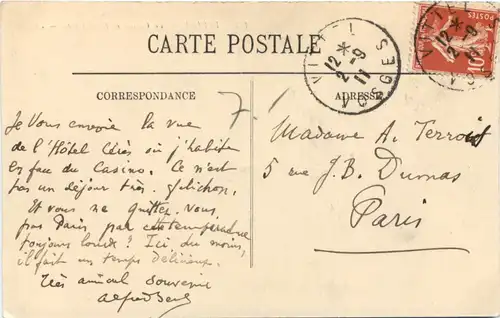 CARTE POSTALE
VITTEL
12 *
2 -9
11
VOSGES
POSTES
10
CORRESPONDANCE
ADRESSE
7.1
Je vous envoie la vue
de l'Hôtel où j'habite
en face du Casino. Ce n'est
pas un séjour très folichon.
Et vous ne quittez vous
pas Paris par cette température
toujours lourde? Ici, du moins,
il fait un temps délicieux.
Très amical souvenir
Alfred
Madame A. Terroir
5 rue J.B. Dumas
Paris